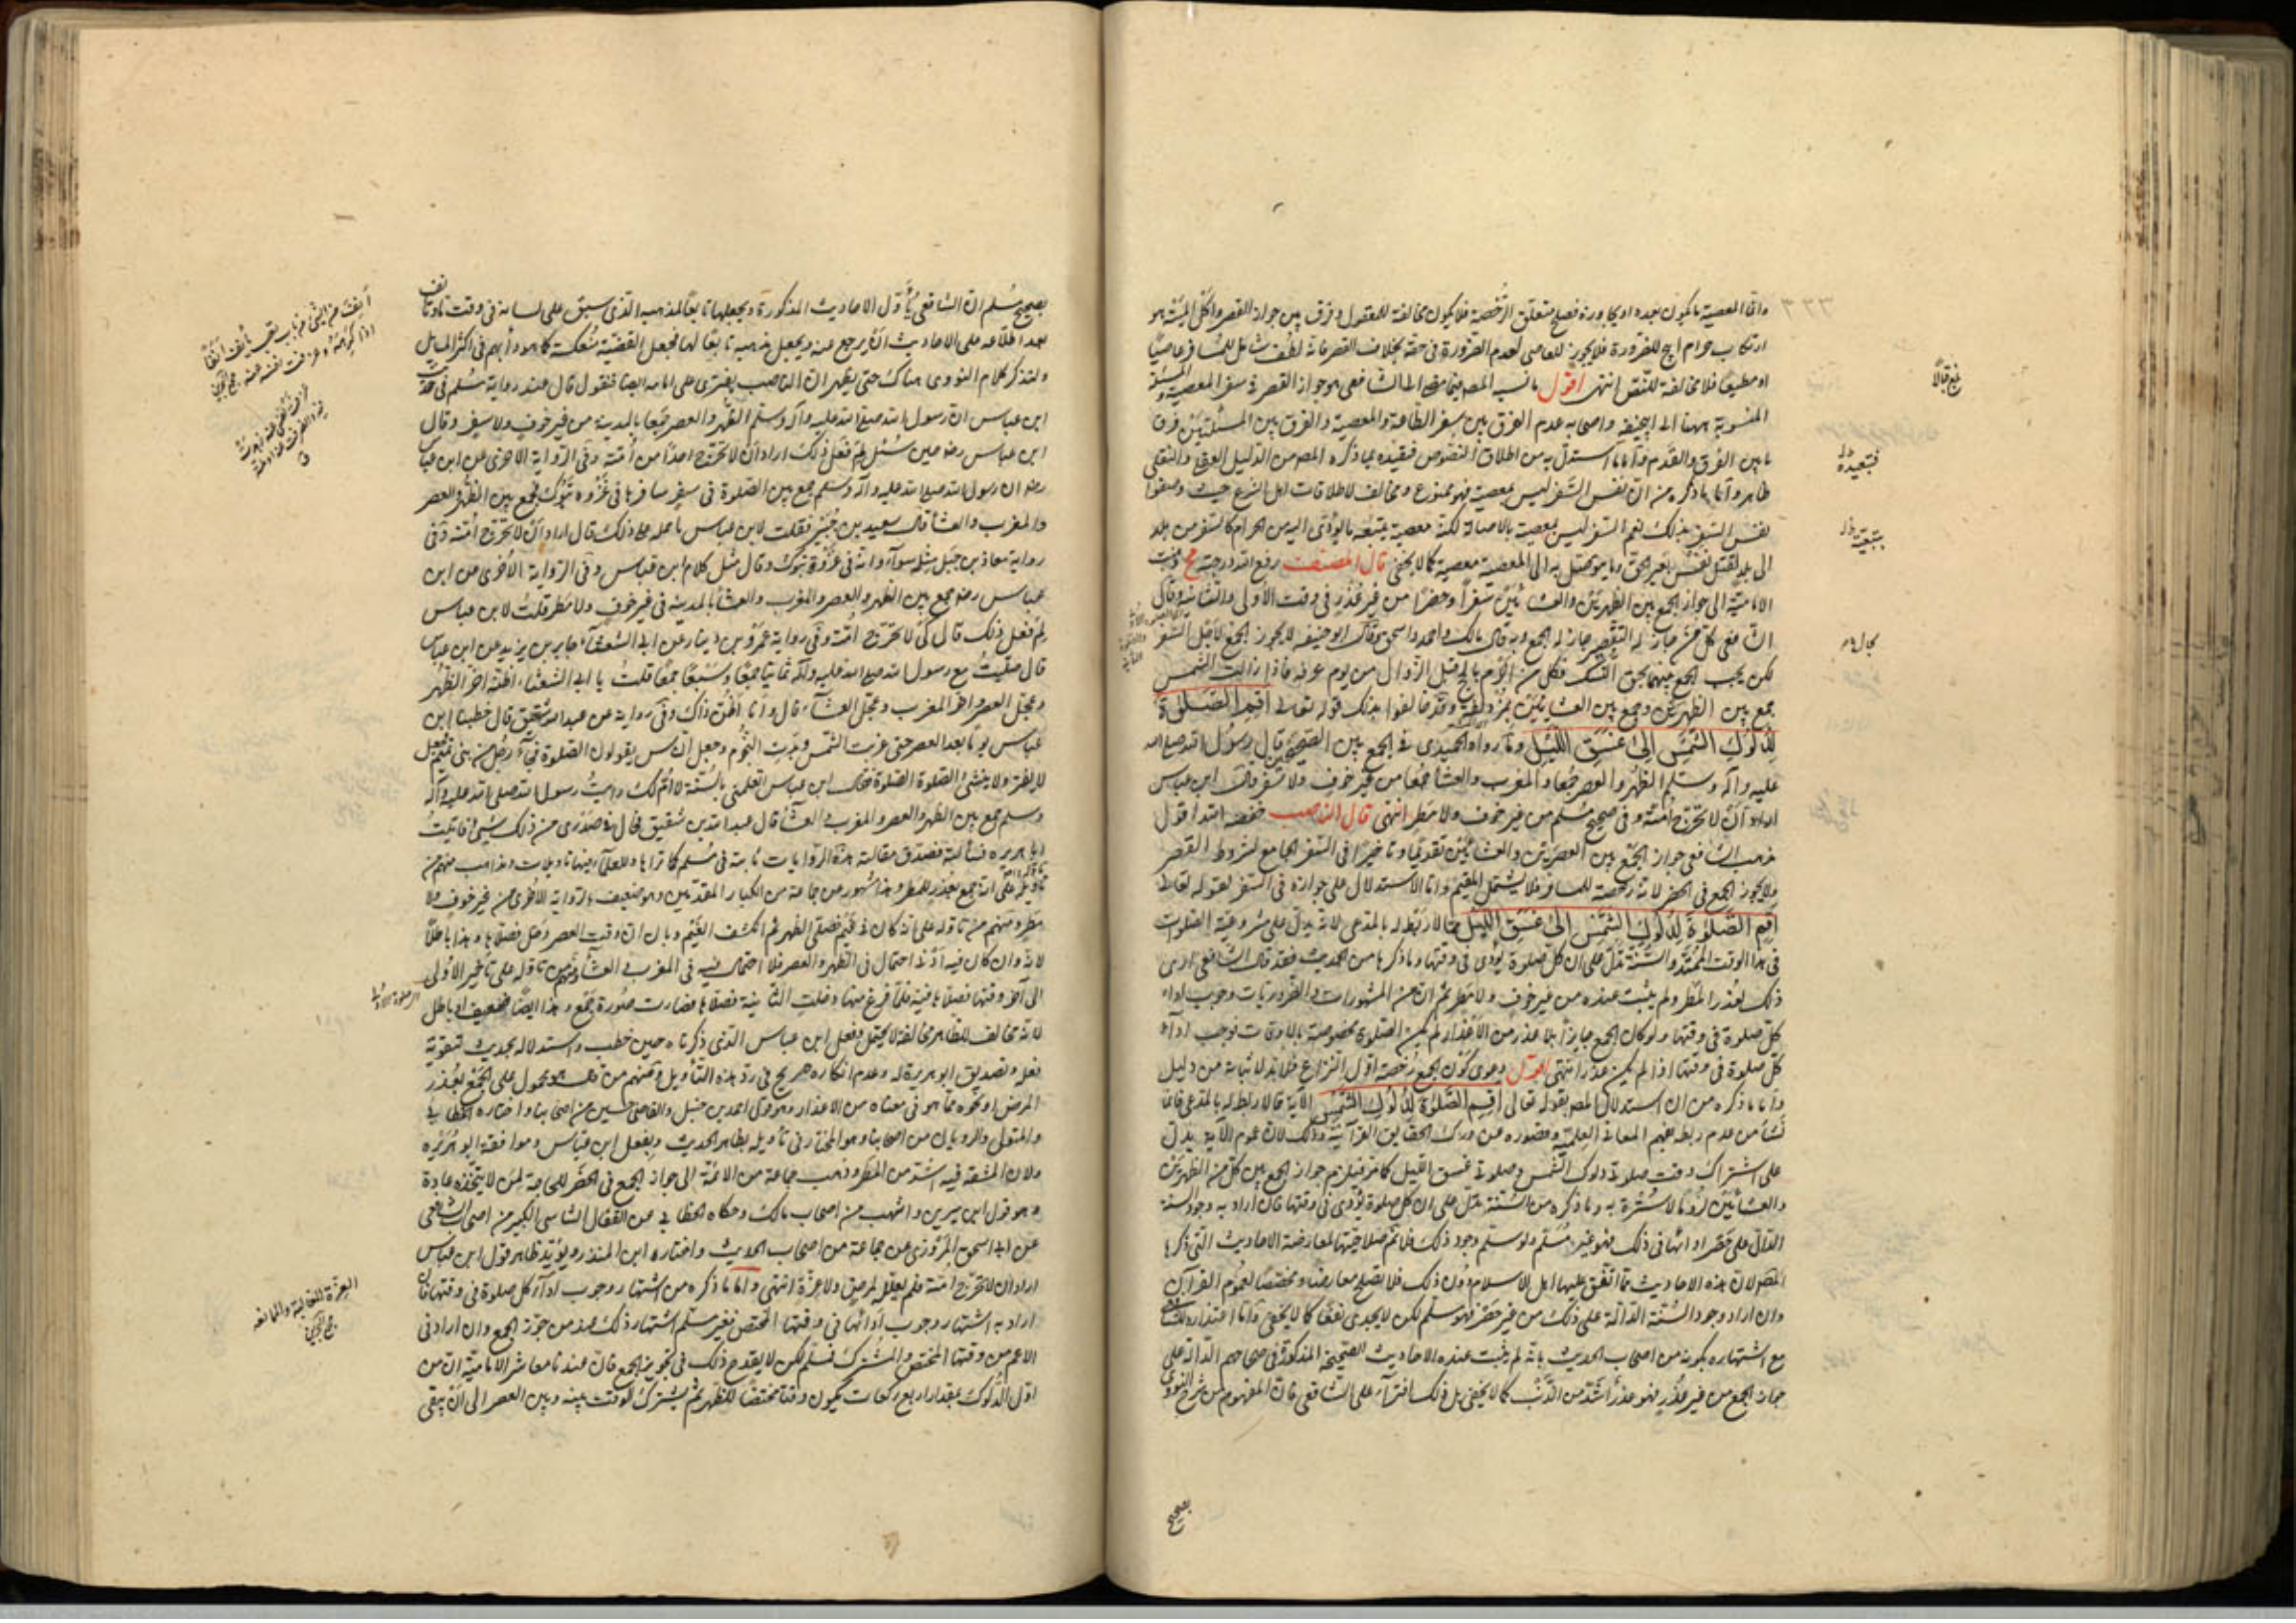 واما المعصية ما يكون بعده او يجاوره فصلح متعلق الرخصة فلا يكون مخالفة للمعقول وفرق بين جواز القصر واكل الميتة هو
ارتكاب حرام ابيح للضرورة فلا يجوز للعاصي لعدم الضرورة في حقه بخلاف القصر فانه لطف شامل للمسافر عاصيا
او مطيعا فلا مخالفة للنص انتهى اقول ما نسب المصنف الى الشافعي هو جواز القصر في سفر المعصية
المنسوبة ههنا الى ابي حنيفة واصحابه عدم الفرق بين سفر الطاعة والمعصية والفرق بين المسئلتين فرق
ما بين الفرق والقدم واما ما استدل به من اطلاق النصوص فتقييده بما ذكره المص من الدليل العقلي والنقلي
ظاهر واما ما ذكره من ان نفس السفر ليس بمعصية فهو ممنوع ومخالف لاطلاقات اهل الشرع حيث وصفوا
نفس السفر بذلك نعم السفر ليس بمعصية بالاصالة لكنه معصية بتبعية ما يؤدى اليه من الحرام كالسفر من بلد
الى بلد لقتل نفس بغير الحق وما يتوصل به الى المعصية معصية كما لا يخفى قال المصنف رفع الله درجته يح ذهبت
الامامية الى جواز الجمع بين الظهرين والعشائين سفرا وحضرا من غير عذر في وقت الاولى والثانية وقال
الشافعي كل من جاز له التقصير جاز له الجمع وبه قال مالك واحمد واسحق وقال ابو حنيفة لا يجوز الجمع لاجل السفر
لكن يجب الجمع بينهما بحق النسك فكل من احرم بالحج قبل الزوال من يوم عرفة فاذا زالت الشمس
جمع بين الظهرين وجمع بين العشائين بمزدلفة وقد خالفوا بذلك قوله تعالى اقم الصلوة
لدلوك الشمس الى غسق الليل وما رواه الحميدي في الجمع بين الصحيحين قال رسول الله صلى الله
عليه وآله وسلم الظهر والعصر جمعا والمغرب والعشاء جمعا من غير خوف ولا سفر وقال ابن عباس
اراد ان لا تحرج امته وفي صحيح مسلم من غير خوف ولا مطر انتهى قال الناصب خفضه الله اقول
مذهب الشافعي جواز الجمع بين العصرين والعشائين تقديما وتاخيرا في السفر الجامع لشروط القصر
ولا يجوز الجمع في الحضر لانه رخصة للمسافر فلا يشتمل المقيم واما الاستدلال على جوازه في السفر بقوله تعالى
اقم الصلوة لدلوك الشمس الى غسق الليل مما لا ربط له بالمدعى لانه يدل على مشروعية الصلوات
في هذا الوقت الممتد والسنة تدل على ان كل صلوة يؤدى في وقتها وما ذكرها من الحديث فقد قال الشافعي ارى
ذلك بعذر المطر ولم يثبت عنده من غير خوف ولا مطر ثم ان من المشهورات والضروريات وجوب اداء
كل صلوة في وقتها ولو كان الجمع جايزا بلا عذر من الاعذار لم يكن الصلوة مخصوصة بالاوقات فوجب اداء
كل صلوة في وقتها اذا لم يكن عذر انتهى اقول دعوى كون الجمع رخصة اول النزاع فلا بد لاثباته من دليل
واما ما ذكره من ان استدلال المص بقوله تعالى اقم الصلوة لدلوك الشمس الآية مما لا ربط له بالمدعى فانما
نشأ من عدم ربطه بفهم المعاني العلمية وقصوره عن درك الحقايق القرآنية وذلك لان عموم الآية يدل
على اشتراك وقت صلوتي دلوك الشمس وصلوتي غسق الليل كما مر فيلزم جواز الجمع بين كل من الظهرين
والعشائين لزوما لا سترة به وما ذكره من السنة تدل على ان كل صلوة يؤدى في وقتها فان اراد به وجود سنة
الدال على حصر ادائها في ذلك فهو غير مسلم ولو سلم وجود ذلك فلا نم صلاحيتها لمعارضة الاحاديث التي ذكرها
المص لان هذه الاحاديث مما اتفق عليها اهل الاسلام دون ذلك فلا يصلح معارضا ومخصصا لعموم القرآن
وان اراد وجود السنة الدالة على ذلك من غير حصر فهو مسلم لكن لا يجدى نفعا كما لا يخفى واما اعتذاره للشافعي
مع اشتهاره بكونه من اصحاب الحديث بانه لم يثبت عنده الاحاديث الصحيحة المذكورة في صحاحهم الدالة على
جواز الجمع من غير عذر فهو عذر اشد من الذنب كما لا يخفى بل ذلك افتراء على الشافعي فان المفهوم من شرح النووي
بصحيح
بصحيح مسلم ان الشافعي يأول الاحاديث المذكورة ويجعلها تابعا لمذهبه الذي سبق على لسانه في وقت
بعد اطلاعه على الاحاديث ان يرجع عنه ويجعل مذهبه تابعا لها فجعل القضية منعكسة كما هو دأبهم في اكثر المسائل
ولنذكر كلام النووي هناك حتى يظهر ان الناصب يفترى على امامه ايضا فنقول قال عند رواية مسلم في حديث
ابن عباس ان رسول الله صلى الله عليه وآله وسلم الظهر والعصر جمعا بالمدينة من غير خوف ولا سفر وقال
ابن عباس رضه حين سئل لم فعل ذلك اراد ان لا تحرج احدا من امته وفي الرواية الاخرى عن ابن عباس
رضه ان رسول الله صلى الله عليه وآله وسلم جمع بين الصلوة في سفر سافرها في غزوة تبوك فجمع بين الظهر والعصر
والمغرب والعشاء قال سعيد بن جبير فقلت لابن عباس ما حمله على ذلك قال اراد ان لا تحرج امته وفي
رواية معاذ بن جبل مثله سواء وانه في غزوة تبوك وقال مثل كلام ابن عباس وفي الرواية الاخرى عن ابن
عباس رضه جمع بين الظهر والعصر والمغرب والعشاء بالمدينة في غير خوف ولا مطر قلت لابن عباس
لم فعل ذلك قال كي لا تحرج امته وفي رواية عمرو بن دينار عن ابي الشعثاء جابر بن يزيد عن ابن عباس
قال صليت مع رسول الله صلى الله عليه وآله ثمانيا جميعا وسبعا جمعا قلت يا ابا الشعثاء اظنه اخر الظهر
وعجل العصر واخر المغرب وعجل العشاء قال وانا اظن ذاك وفي رواية عن عبد الله بن شقيق قال خطبنا ابن
عباس يوما بعد العصر حتى غربت الشمس وبدت النجوم وجعل الناس يقولون الصلوة فجاء رجل من بني تميم فجعل
لا يفتر ولا ينثني الصلوة الصلوة فقال ابن عباس اتعلمني بالسنة لا ام لك رايت رسول الله صلى الله عليه وآله
وسلم جمع بين الظهر والعصر والمغرب والعشاء قال عبد الله بن شقيق فحال في صدري من ذلك شيء فاتيت
ابا هريرة فسألته فصدق مقالته هذه الروايات ثابتة في مسلم كما تراها وللعلماء فيها تاويلات ومذاهب منهم من
تاوله على انه جمع بعذر المطر وهذا مشهور من جماعة من الكبار المتقدمين وهو ضعيف بالرواية الاخرى من غير خوف ولا
مطر ومنهم من تاوله على انه كان في غيم فصلى الظهر ثم انكشف الغيم وبان ان وقت العصر دخل فصلاها وهذا باطل
لانه وان كان فيه ادنى احتمال في الظهر والعصر فلا احتمال فيه في المغرب والعشاء ومنهم من تاوله على تاخير الاولى
الى آخر وقتها فصلاها فيه فلما فرغ منها دخلت الثانية فصلاها فصارت صورة جمع وهذا ايضا ضعيف او باطل
لانه مخالف للظاهر مخالفة لا يحتمل وفعل ابن عباس الذي ذكرناه حين خطب واستدلاله بحديث لتصويب
فعله وتصديق ابو هريرة له وعدم انكاره صريح في رد هذه التأويل ومنهم من قال هو محمول على الجمع بعذر
المرض او نحوه مما هو في معناه من الاعذار وهو قول احمد بن حنبل والقاضي حسين من اصحابنا واختاره الخطابي
والمتولي والروياني من اصحابنا وهو المختار في تأويله بظاهر الحديث وبفعل ابن عباس وموافقة ابو هريرة
ولان المشقة فيه اشد من المطر وذهب جماعة من الائمة الى جواز الجمع في الحضر للحاجة لمن لا يتخذه عادة
وهو قول ابن سيرين واشهب من اصحاب مالك وحكاه الخطابي عن القفال الشاشي الكبير من اصحاب الشافعي
عن ابي اسحق المروزي عن جماعة من اصحاب الحديث واختاره ابن المنذر ويؤيده ظاهر قول ابن عباس
اراد ان لا تحرج امته فلم يعلله لمرض ولا غيره انتهى واما ما ذكره من اشتهار وجوب اداء كل صلوة في وقتها فان
اراد به اشتهار وجوب ادائها في وقتها المختص فغير مسلم اشتهار ذلك عند من جوز الجمع وان اراد في
الاعم من وقتها المختص والمشترك فمسلم لكن لا يقدح ذلك في تجويز الجمع فان عندنا معاشر الامامية ان من
اول الدلوك بمقدار اربع ركعات يكون وقتا مختصا للظهر ثم يشترك الوقت بينه وبين العصر الى ان يبقى